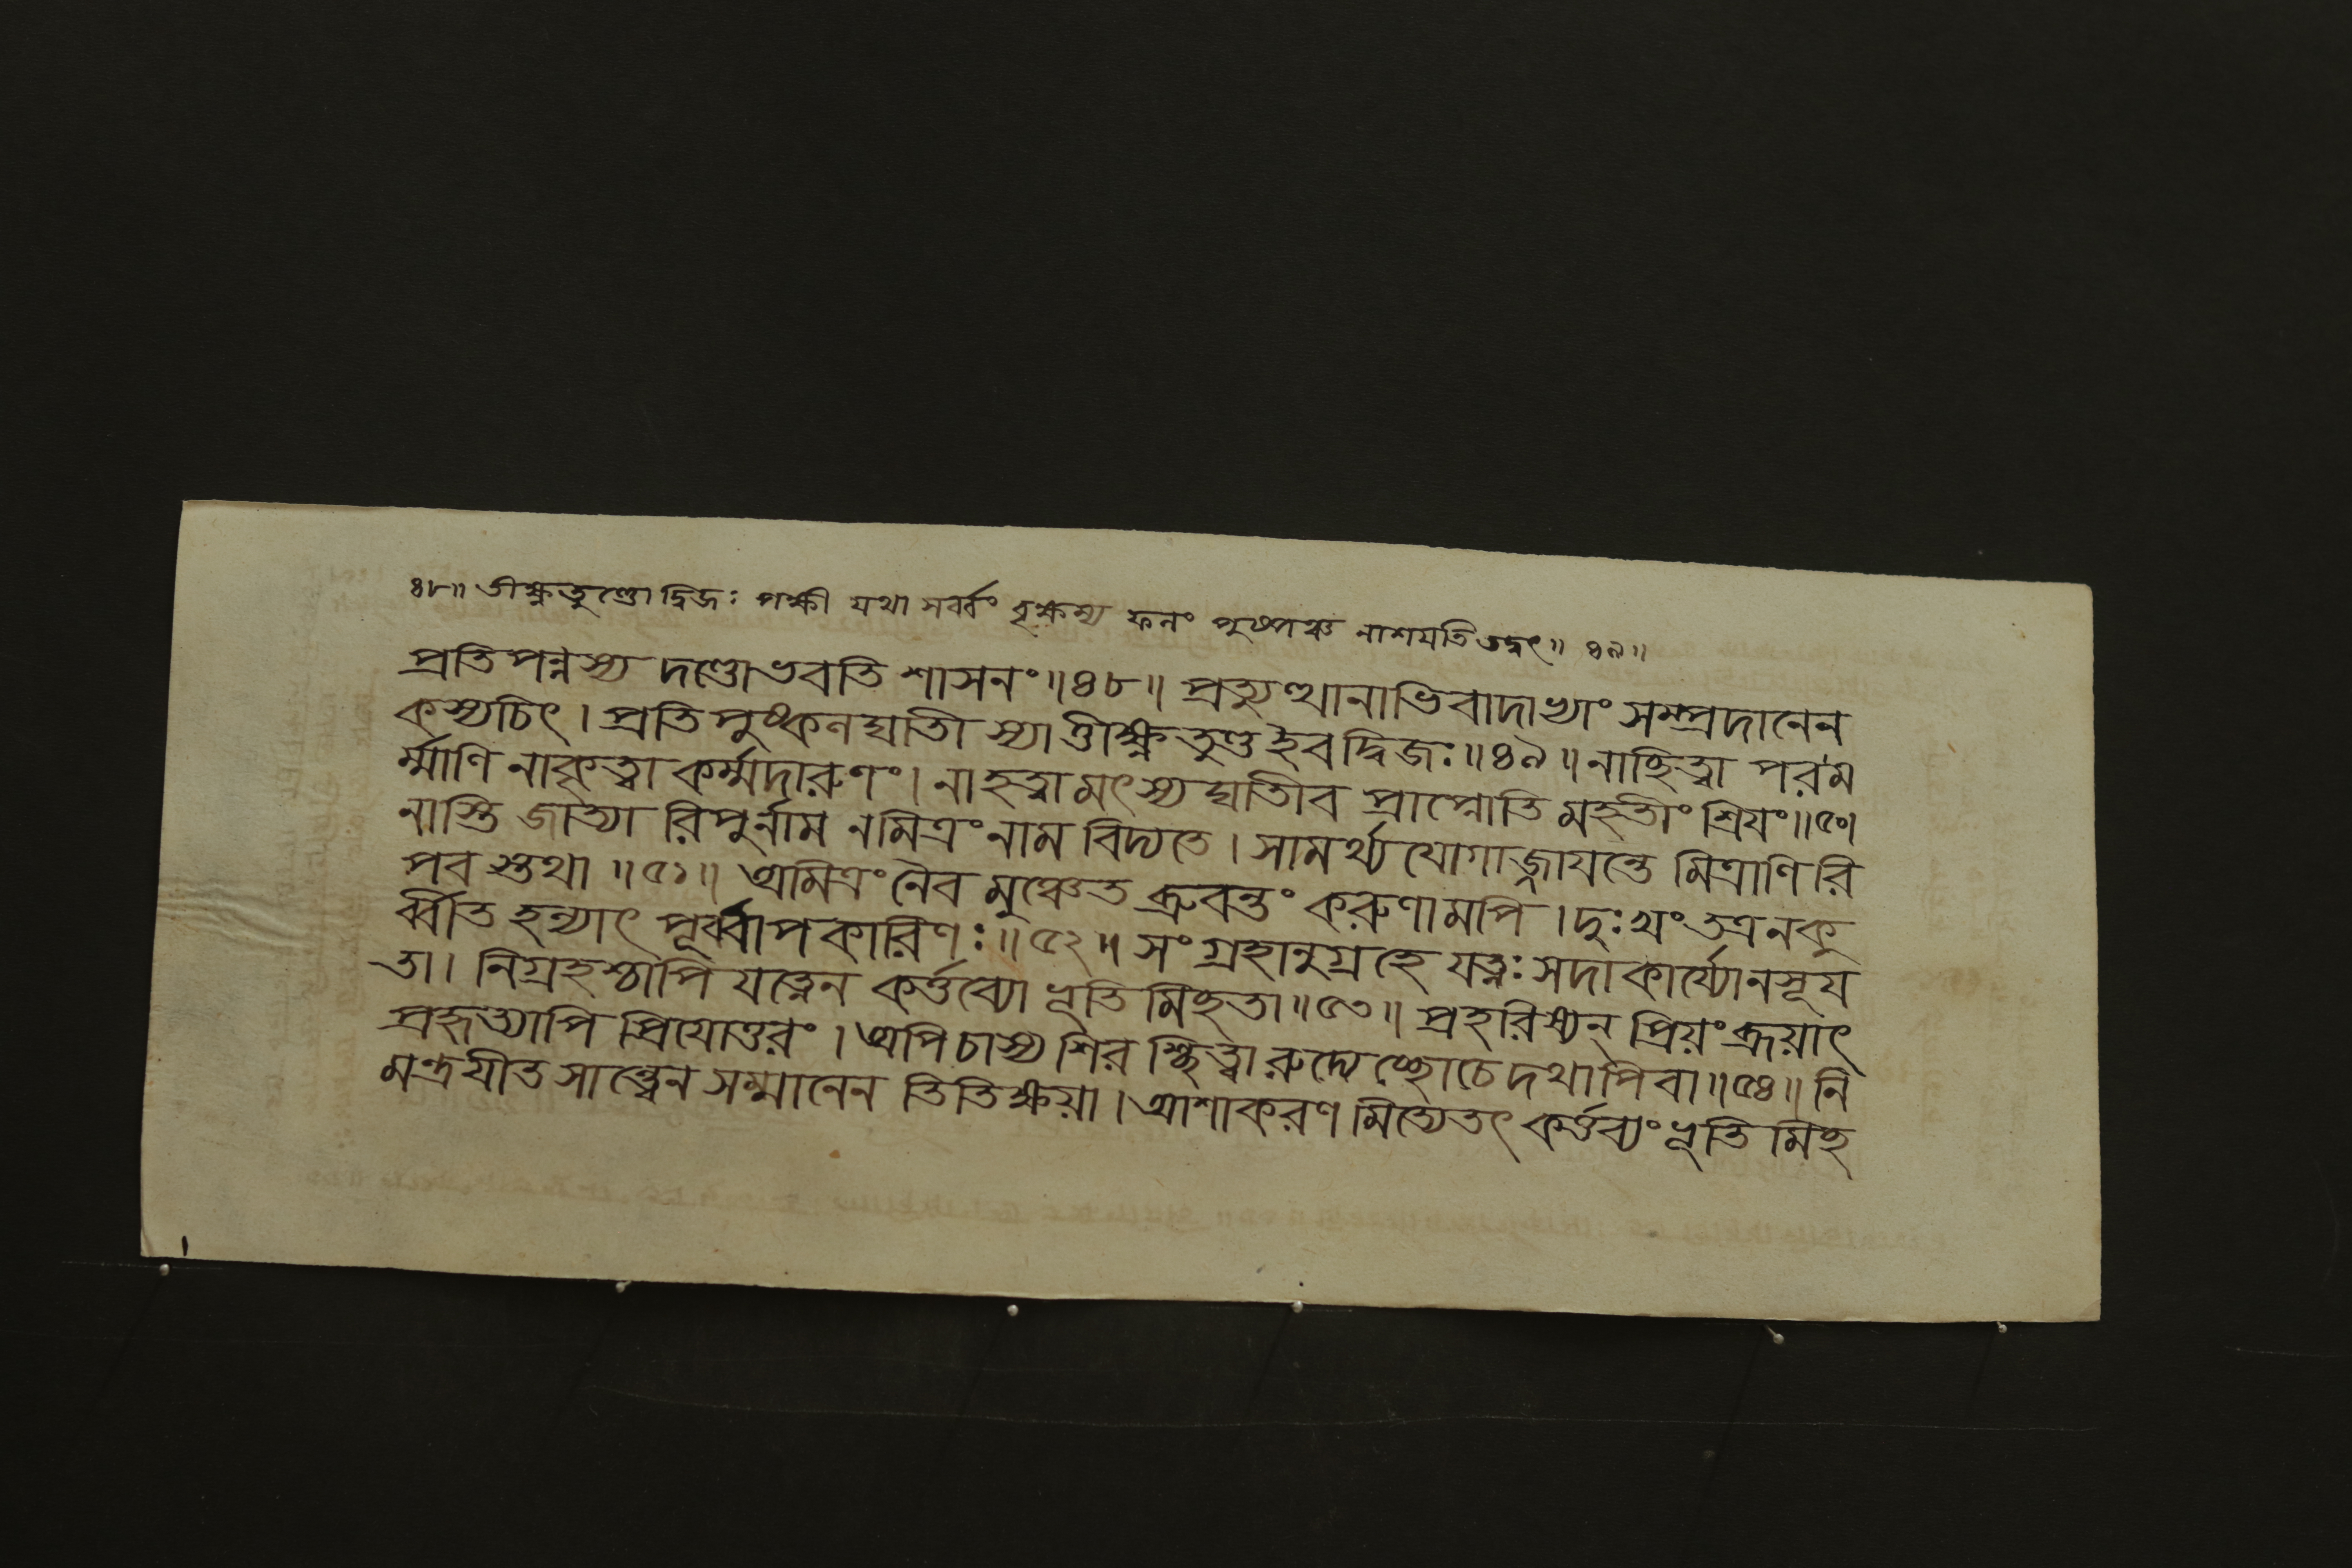 ৪৮॥ তীক্ষ্ণতুণ্ডো দ্বিজঃ পক্ষী যথা সর্ব্বং বৃক্ষস্য ফলং পুষ্পঞ্চ নাশয়তি তদ্বৎ॥ ৪৯॥
প্রতিপন্নস্য দণ্ডোভবতি শাসনং॥৪৮॥ প্রত্যুত্থানাভিবাদাভ্যাং সম্প্রদানেন
কস্যচিৎ। প্রতিপুষ্কলঘাতী স্যাত্তীক্ষ্ণতুণ্ড ইবদ্বিজঃ॥৪৯॥ নাচ্ছিত্ত্বা পরম
র্ম্মাণি নাকৃত্বা কর্ম্মদারুণং। নাহত্বামৎস্যঘাতীব প্রাপ্নোতি মহতীং শ্রিযং॥৫০।
নাস্তি জাত্যা রিপুর্নাম নমিত্রং নাম বিদ্যতে। সামর্থ্যযোগাজ্জাযন্তে মিত্রাণি রি
পব স্তথা॥৫১॥ অমিত্রং নৈব মুঞ্চেত ব্রুবন্তং করুণামপি। দুঃখং তত্রনকু
র্ব্বীত হন্যাৎ পূর্ব্বাপকারিণঃ॥৫২॥ সংগ্রহানুগ্রহে যত্নঃ সদাকার্য্যোনসূয
তা। নিগ্রহশ্চাপি যত্নেন কর্ত্তব্যো ভূতিমিচ্ছতা॥৫৩॥ প্রহরিষ্যন্ প্রিয়ং ব্রূয়াৎ
প্রহৃত্যাপি প্রিযোত্তরং। অপিচাস্য শিরশ্ছিত্ত্বা রুদ্যেচ্ছোচেদথাপিবা॥৫৪॥ নি
মন্ত্রযীত সান্ত্বেন সম্মানেন তিতিক্ষয়া। আশাকরণমিত্যেতৎ কর্ত্তব্যং ভূতিমিচ্ছ